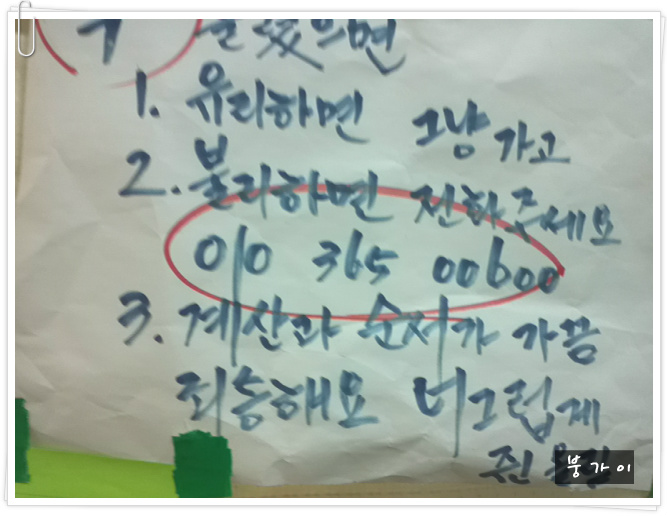 1. 유리하면 그냥 가고
2. 불리하면 전화주세요
010 365 00600
3. 계산과 순서가 가끔
죄송해요 너그럽게
쥔
붕가이